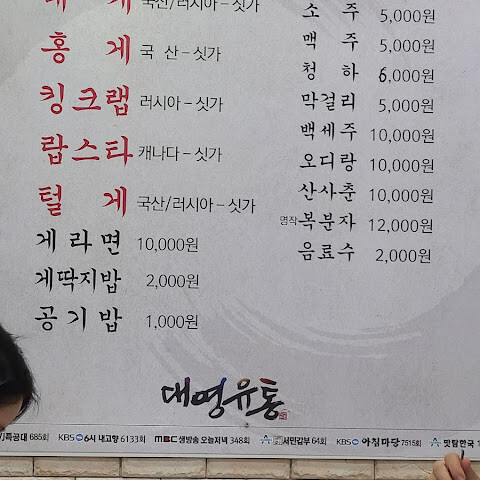 게 국산/러시아 – 싯가
홍 게 국 산 – 싯가
킹크랩 러시아 – 싯가
랍스타 캐나다 – 싯가
털 게 국산/러시아 – 싯가
게 라 면 10,000원
게딱지밥 2,000원
공 기 밥 1,000원
소 주 5,000원
맥 주 5,000원
청 하 6,000원
막걸리 5,000원
백세주 10,000원
오디랑 10,000원
산사춘 10,000원
명작 복분자 12,000원
음료수 2,000원
대영유통
VJ특공대 685회 KBS 6시 내고향 6133회 MBC 생방송 오늘저녁 348회 서민갑부 64회 KBS 아침마당 7515회 맛탐한국